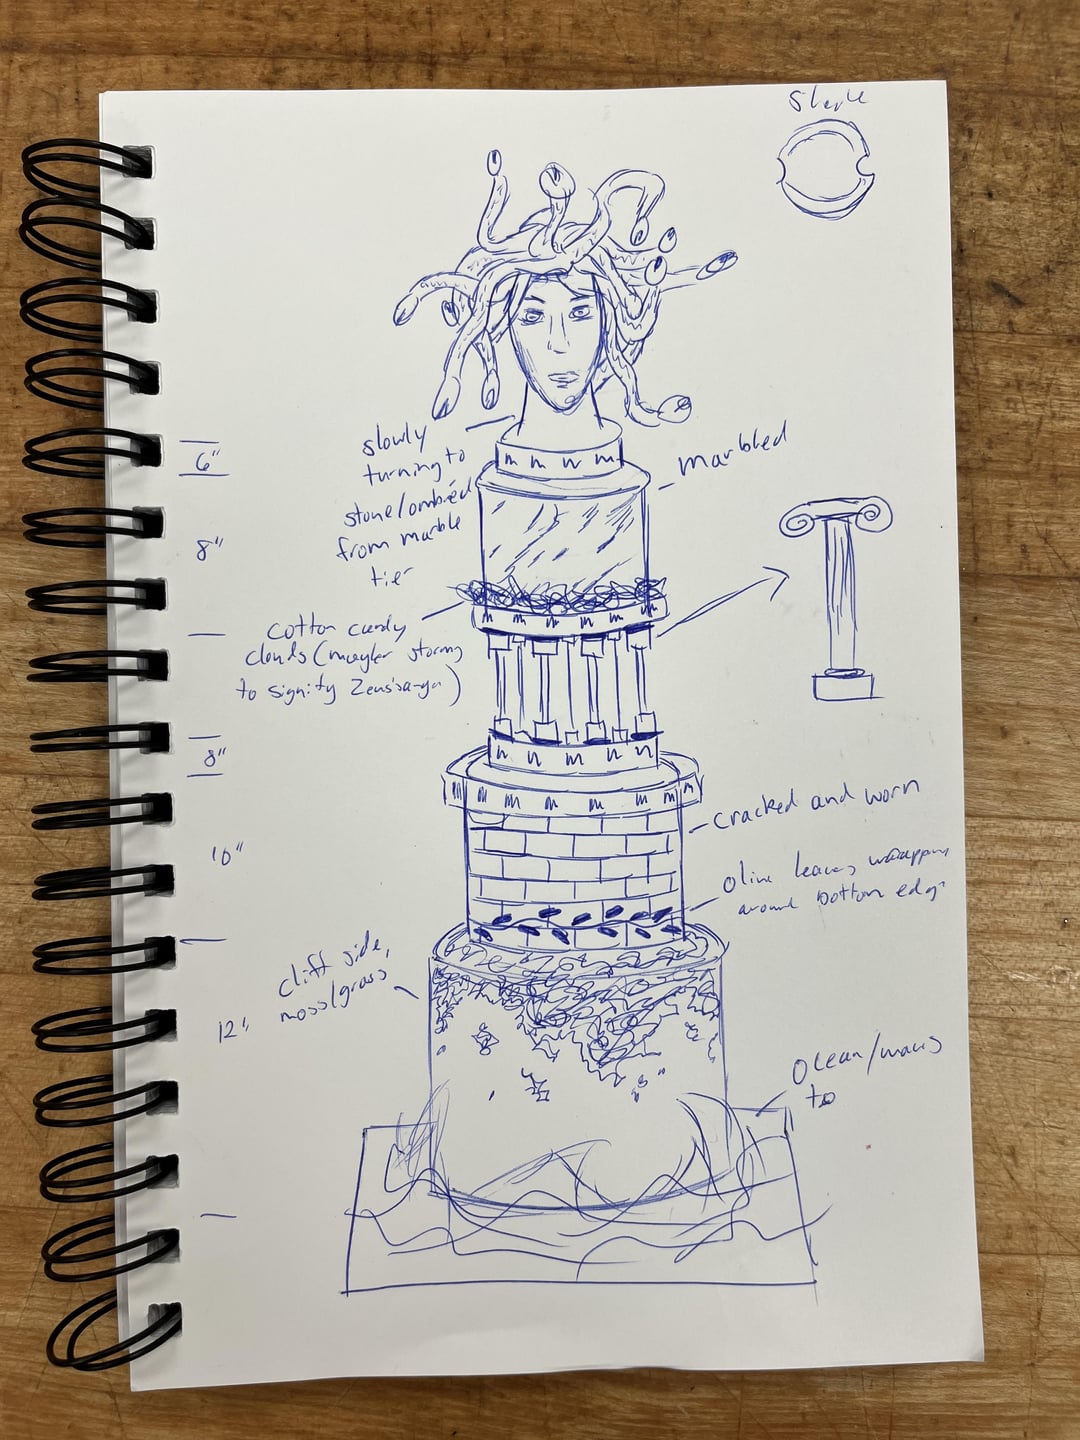 slowly
turning to
stone/ombréd
from marble
tier
marbled
6"
8"
cotton candy
clouds (maybe stormy
to signify Zeus
8"
cracked and worn
10"
olive leaves wrapping
around bottom edge
cliff side,
moss/grass
12"
ocean/waves
to